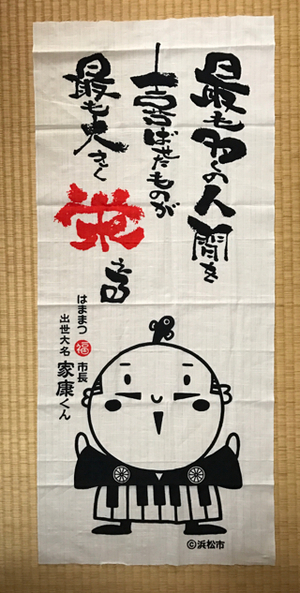 最も多くの人間を
喜ばせたものが
最も大きく
栄える
はままつ福市長
出世大名 家康くん
©浜松市